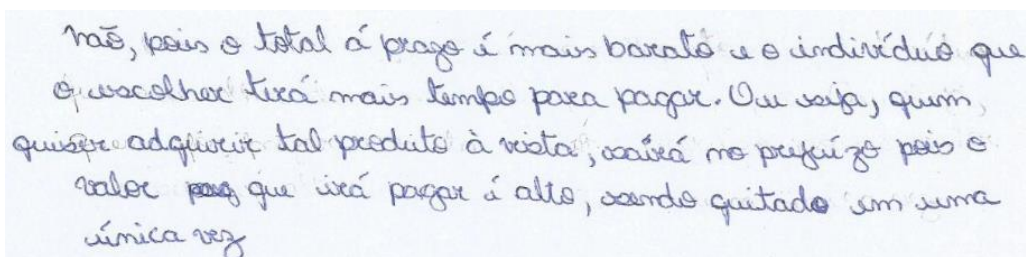 não, pois o total á prazo é mais barato e o indivíduo que
o escolher terá mais tempo para pagar. Ou seja, quem
quiser adquirir tal produto à vista, sairá no prejuízo pois o
valor que irá pagar é alto, sendo quitado em uma
única vez